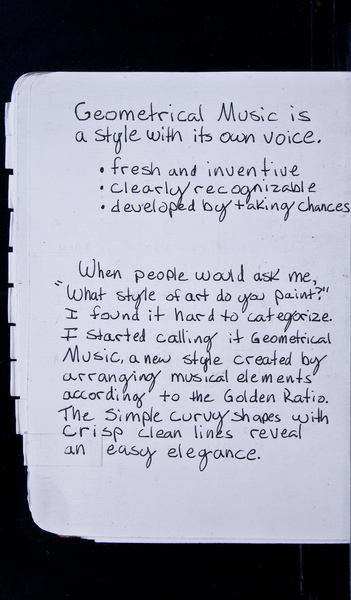 Geometrical Music is
a style with its own voice.
• fresh and inventive
• clearly recognizable
• developed by taking chances
When people would ask me,
"What style of art do you paint?"
I found it hard to categorize.
I started calling it Geometrical
Music, a new style created by
arranging musical elements
according to the Golden Ratio.
The simple curvy shapes with
crisp clean lines reveal
an easy elegance.